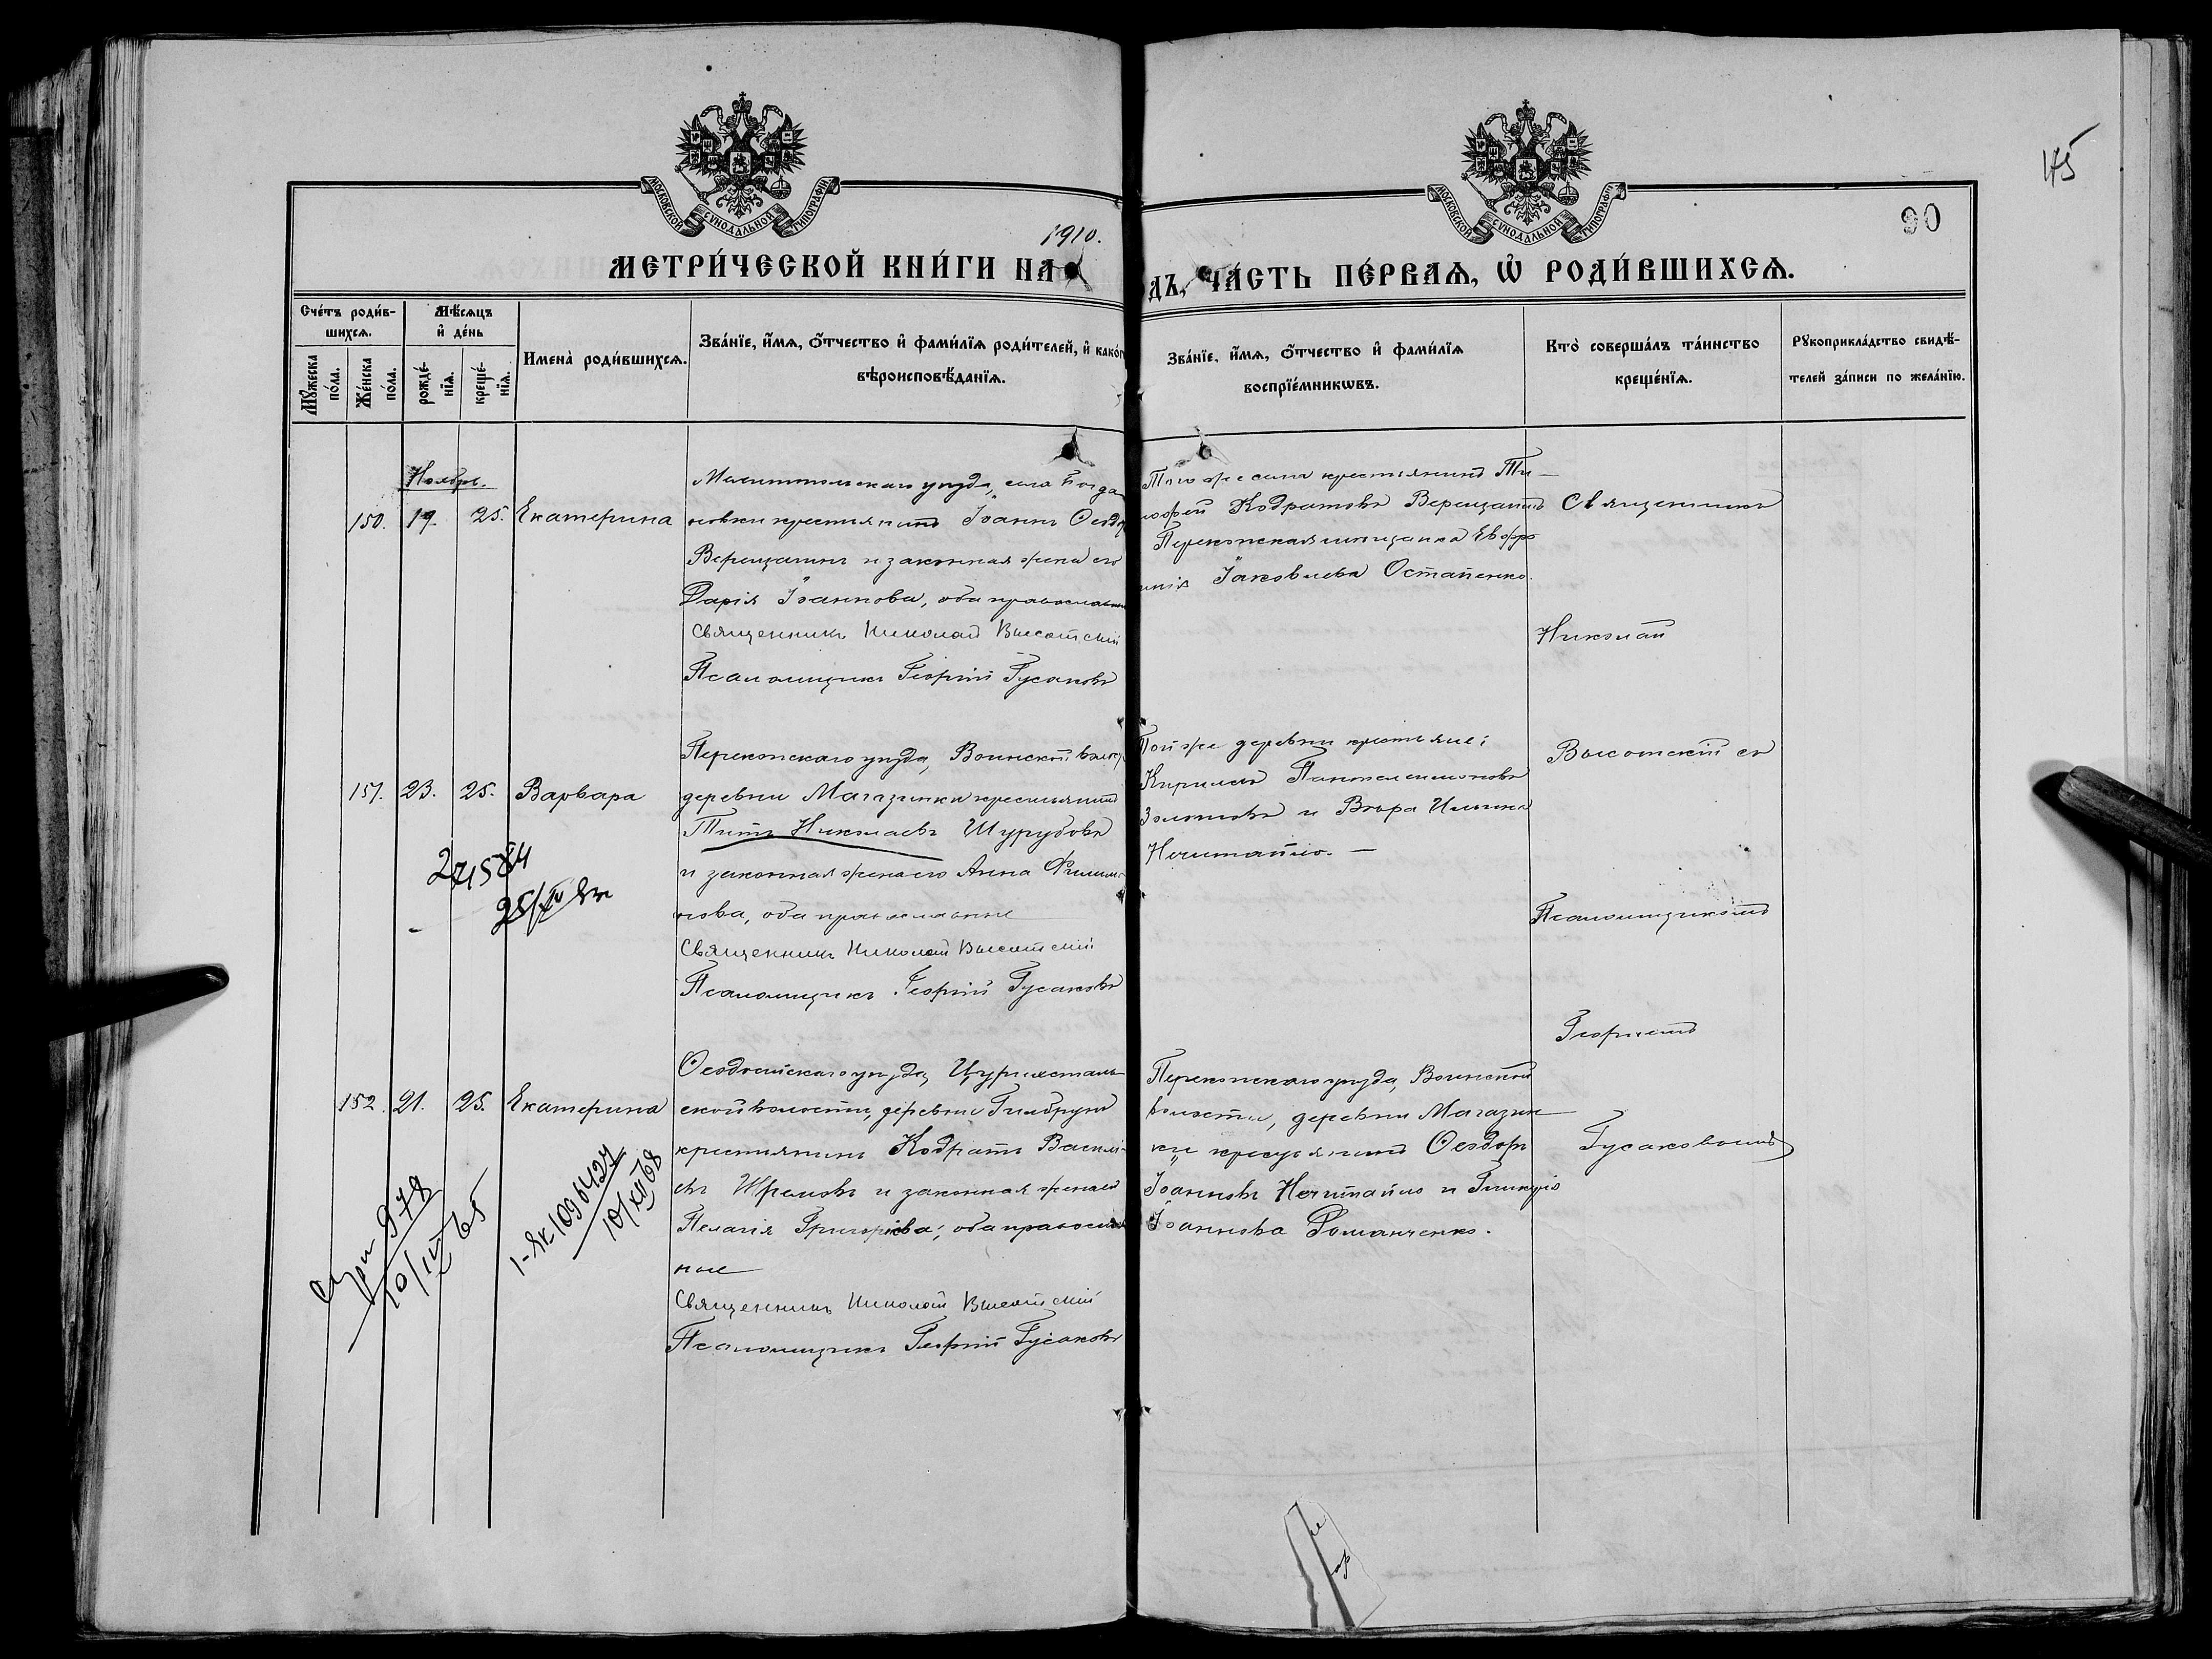 175
90
МОСКОВСКОЙ СѴНОДАЛЬНОЙ ТИПОГРАФІИ
МОСКОВСКОЙ СѴНОДАЛЬНОЙ ТИПОГРАФІИ
1910.
МЕТРИ́ЧЕСКОЙ КНИ́ГИ НА
ДЪ, ЧА́СТЬ ПЕ́РВАѦ, Ѽ РОДИ́ВШИХСѦ.
Сче́тъ роди́в-
шихсѧ.
Мꙋ́жеска по́ла.
Же́нска по́ла.
Мѣ́сѧцъ
и҆ де́нь
рожде́-
нїѧ.
креще́-
нїѧ.
Имена̀ роди́вшихсѧ.
Зва́нїе, и҆́мѧ, ѻ҆́тчество и҆ фами́лїѧ роди́телей, и҆ како́г
вѣроисповѣ́данїѧ.
Зва́нїе, и҆́мѧ, ѻ҆́тчество и҆ фами́лїѧ
воспрїе́мникѡвъ.
Кто̀ соверша́лъ та́инство
креще́нїѧ.
Рꙋкоприкла́дство свидѣ́-
телей за́писи по жела́нїю.
Ноябрь.
150. 19. 25. Екатерина
Мелитопольскаго уѣзда, села Богда
новки крестьянинъ Іоаннъ Ѳеодо
Верещагинъ и законная жена его
Дарія Іоаннова, оба православн
Священникъ Николай Высотскій
Псаломщикъ Георгій Гусаковъ
Того же села крестьянинъ Ти-
моѳей Кодратовъ Верещагинъ
Перекопская мѣщанка Евфро
инія Іаковлева Остапенко.
Священникъ
Николай
151. 23. 25. Варвара
Перекопскаго уѣзда, Воинской волос
деревни Магазинки крестьянинъ
Титъ Николаевъ Шурубовъ
и законная жена его Анна Филим
нова, оба православные
Священникъ Николай Высотскій
Псаломщикъ Георгій Гусаковъ
Той же деревни крестьяне:
Кириллъ Пантелеимоновъ
Золотовъ и Вѣра Ильина
Нечитайло. —
Высотскій съ
Псаломщикомъ
Георгіемъ
152. 21. 25. Екатерина
Ѳеодосійскаго уѣзда, Цурихсталь
ской волости, деревни
крестьянинъ Кодратъ Василі-
евъ и законная жена его
Пелагія Григоріева; оба православ
ные
Священникъ Николай Высотскій
Псаломщикъ Георгій Гусаковъ
Перекопскаго уѣзда, Воинской
волости, деревни Магазин-
ки крестьянинъ Ѳеодоръ
Іоанновъ Нечитайло и Гликерія
Іоаннова Романченко.
Гусаковымъ
978
10/IV 65
1-ЯК 1096427
10/XII 68